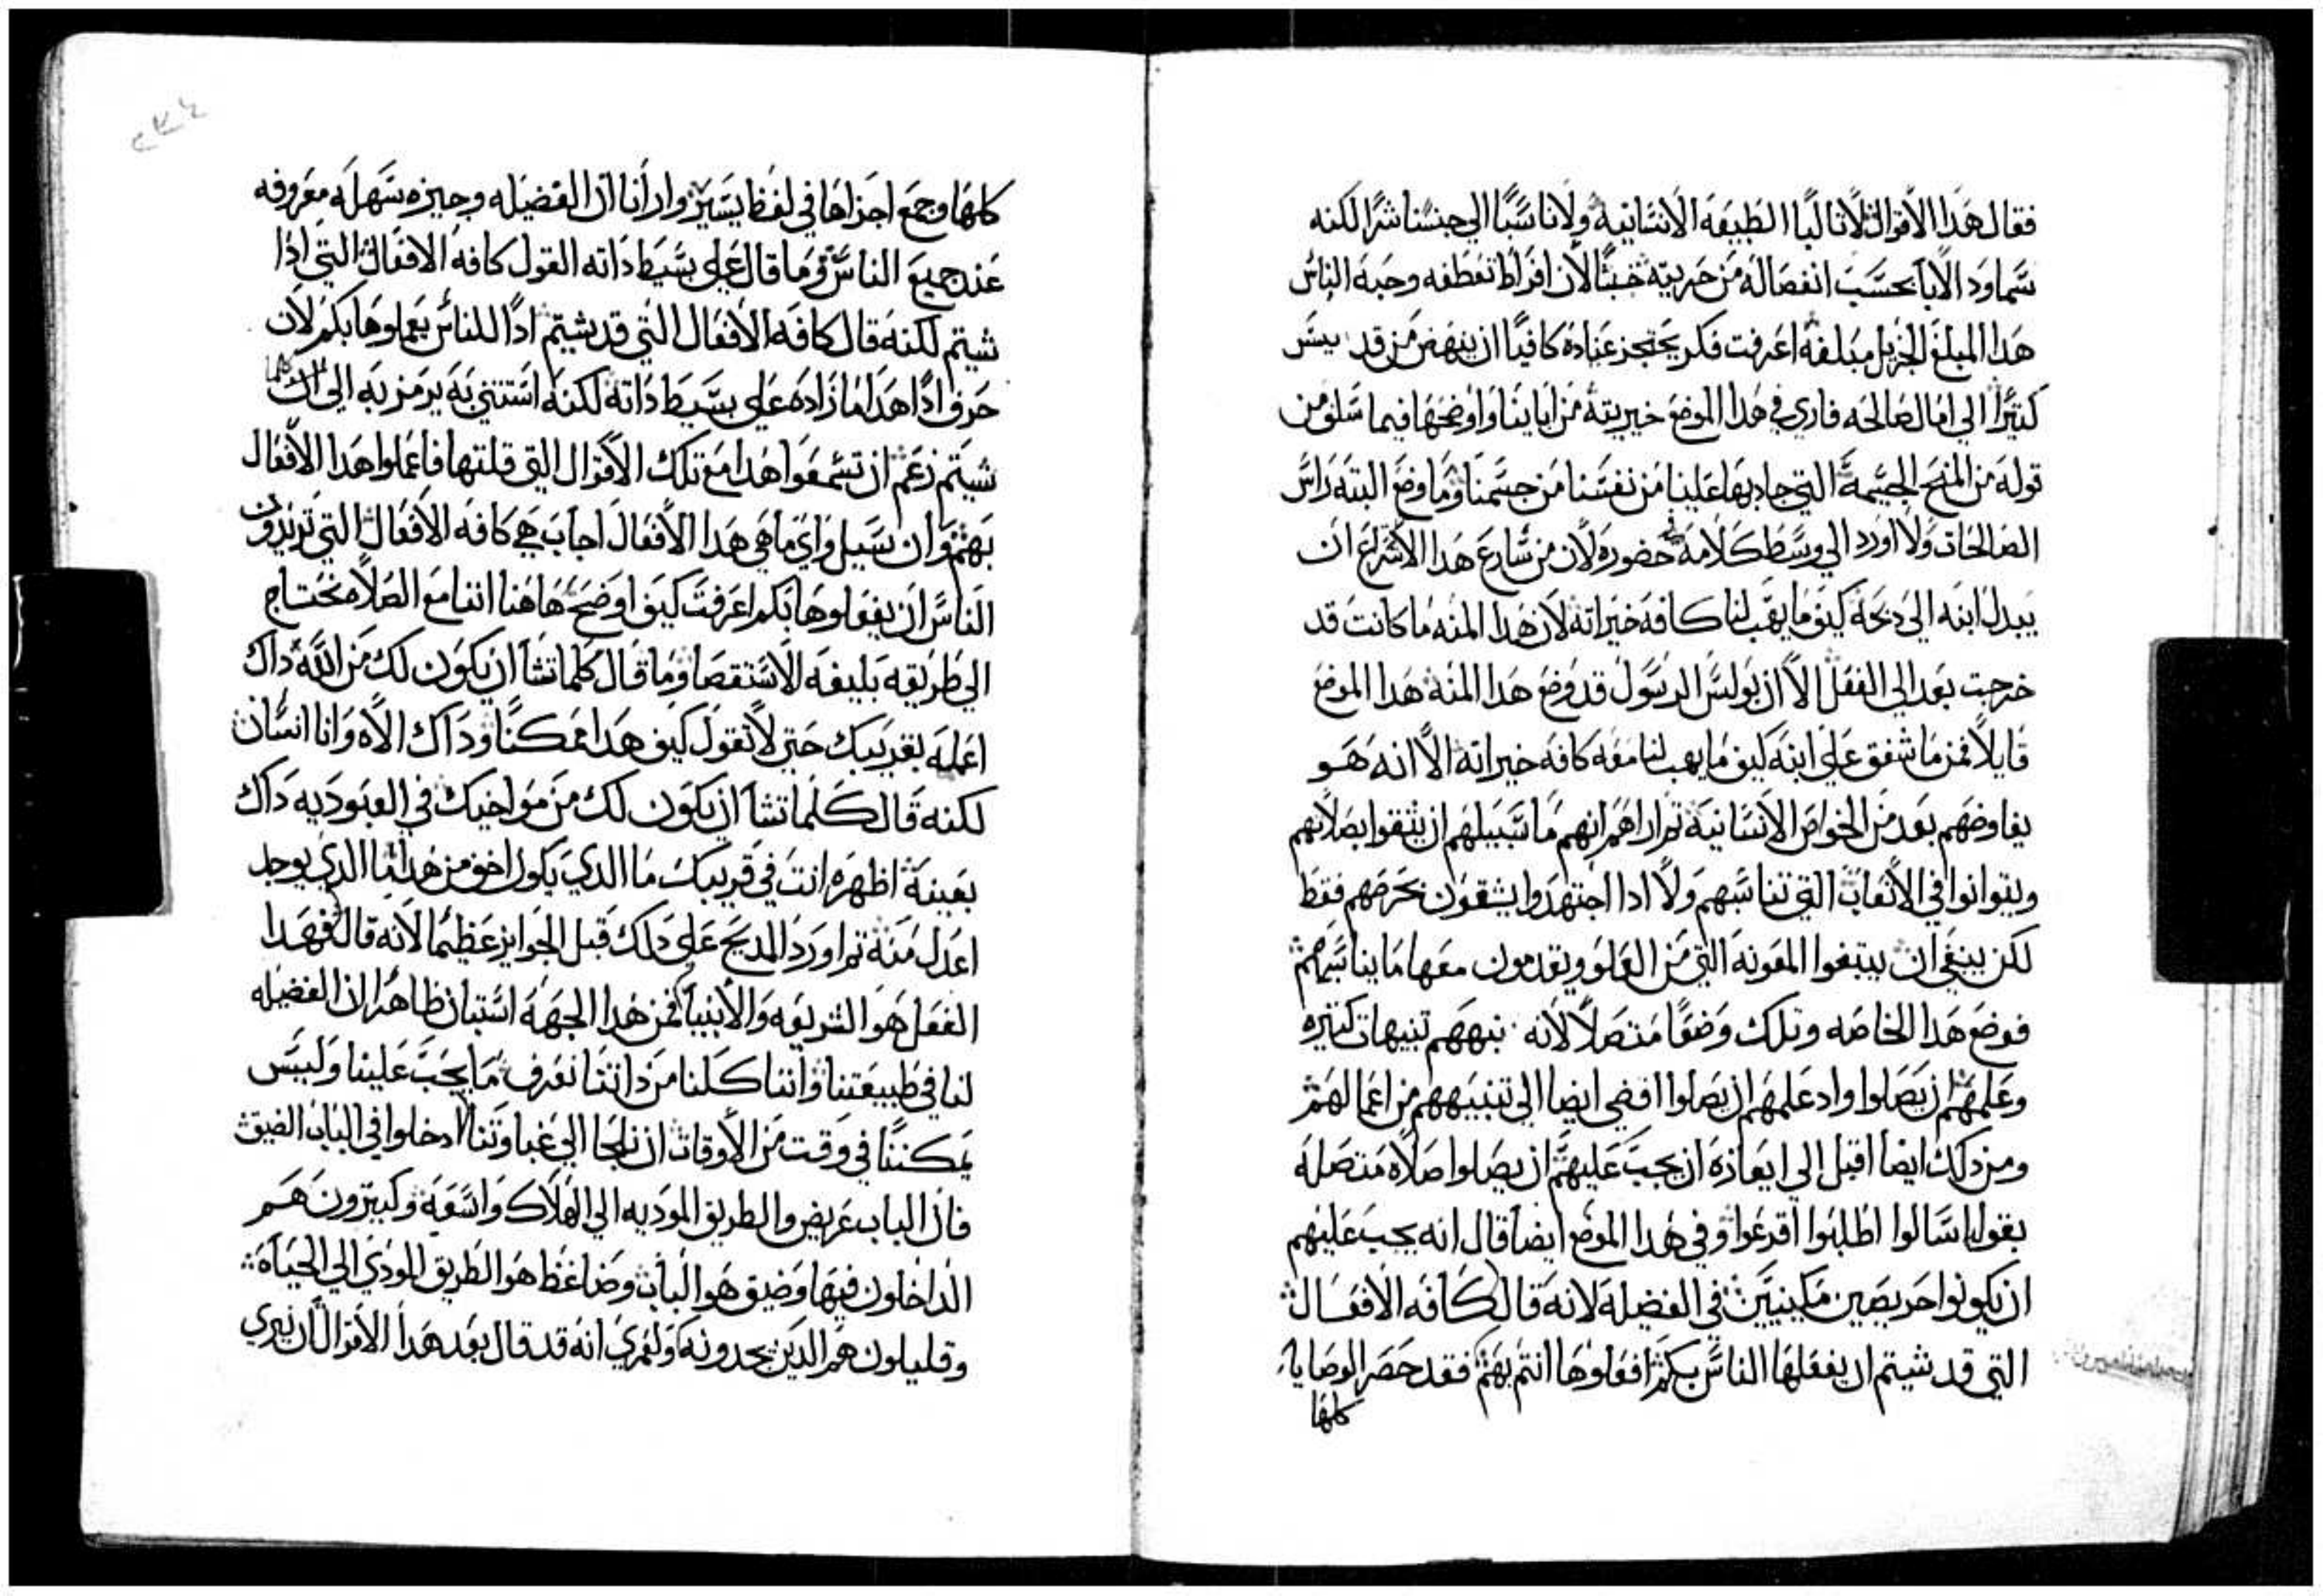 فقال هدا الاقوال لا تالبًا الطبيعه الانسانيه ولا ناسبًا الي جنسنا شرًا لكنه
سما ود الابا بحسب انفصاله من خيريته خبثًا لان افراط تعطفه وحبه الناس
هدا المبلغ الجزيل مبلغه اعرفت فكر يحتجز عباده كافيًا ان ينهض من قد ييس
كتيرًا الي امال صالحه فاري في هدا الموضع خيريته من اباينا واوضحها فيما سلف من
قوله من المنح الجسيمة التي جاد بها علينا من نفسنا من جسمنا وما وضع البته راس
الصالحات ولا اورد الي وسط كلامه حضوره لان من سارع هدا الاسراع ان
يبدل ابنه الي دبحه كيف ما يهب لنا كافه خيراته لان هدا المنه ما كانت قد
خرجت بعد الي الفعل الا ان بولس الرسول قد وضع هدا المنه هدا الموضع
قايلا فمن ما شفق علي ابنه كيف ما يهب لنا معه كافه خيراته الا انه هو
يفاوضهم بعد من الخواص الانسانية تم اراهم انهم ما سبيلهم ان يتقوا بصلاتهم
ويتوانوا في الاتعاب التي تناسبهم ولا ادا اجتهدوا يتقون بحرصهم فقط
لكن ينبغي ان يبتغوا المعونه التي من العلو ويقدمون معها ما يناسبهم
فوضع هدا الخاصه وتلك وضعًا متصلًا لانه نبههم تنبيهات كتيره
وعلمهم ان يصلوا واد علمهم ان يصلوا افضي ايضا الي تنبيههم من اعمالهم
ومن دلك ايضا اقبل الي ايعازه ان يجب عليهم ان يصلوا صلاه متصله
بقوله اسالوا اطلبوا اقرعوا وفي هدا الموضع ايضا قال انه يجب عليهم
ان يكونوا حريصين مكينين في الفضيله لانه قال كافه الافعال
التي قد شيتم ان يفعلها الناس بكم افعلوها انتم بهم فقد حصر الوصايا
كلها
كلها وجمع اجزاها في لفظ يسير وارانا ان الفضيله وجيزه سهله معروفه
عند جميع الناس وما قال علي بسيط داته القول كافه الافعال التي ادا
شيتم لكنه قال كافه الافعال التي قد شيتم ادًا للناس يعملوها بكم لان
حرف ادًا هدا ما زاده علي بسيط داته لكنه استتني به يرمز به الي ان كلما
شيتم زعم ان تسمعوا هدا مع تلك الاقوال التي قلتها فاعملوا هدا الافعال
بهم وان سيل واي ما هي هدا الافعال اجاب هي كافه الافعال التي تريدون
الناس ان يفعلوها بكم اعرفت كيف اوضح هاهنا اننا مع الصلاه نحتاج
الي طريقه بليغه الاستقصا وما قال كلما تشا ان يكون لك من الله داك
اعمله بقريبك حتي لا تقول كيف هدا ممكنًا وداك الاه وانا انسان
لكنه قال كلما تشا ان يكون لك من مواخيك في العبوديه داك
بعينه اظهره انت في قريبك ما الدي يكون اخف من هدا ما الدي يوجد
اعدل منه تم اورد المديح علي دلك قبل الجوايز عظيمًا لانه قال فهدا
الفعل هو الشريعه والانبيا فمن هدا الجهه استبان ظاهرًا ان الفضيله
لنا في طبيعتنا واننا كلنا من داتنا نعرف ما يجب علينا وليس
يمكننا في وقت من الاوقات ان نلجا الي غباوتنا ادخلوا في الباب الضيق
فان الباب عريض والطريق الموديه الي الهلاك واسعه وكتيرون هم
الداخلون فيها وضيق هو الباب وضاغط هو الطريق المودي الي الحياه
وقليلون هم الدين يجدونه ولعمري انه قد قال بعد هدا الاقوال ان نيري